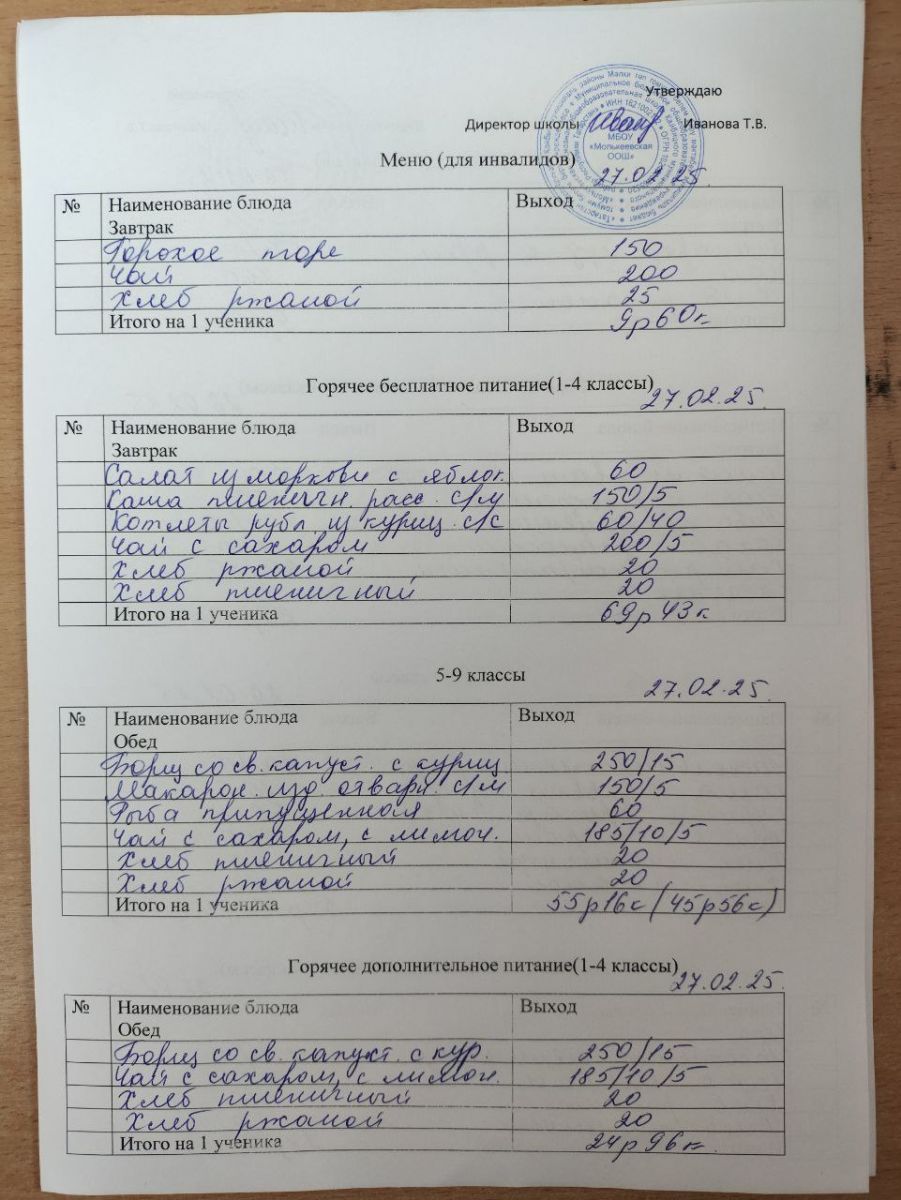 Утверждаю
Директор школы Иванова Т.В.
МБОУ
«Молькеевская
ООШ»
Меню (для инвалидов)
27.02.25.
№ Наименование блюда Выход
Завтрак
Горохое пюре 150
Чай 200
Хлеб ржаной 25
Итого на 1 ученика 9р60к
Горячее бесплатное питание(1-4 классы)
27.02.25.
№ Наименование блюда Выход
Завтрак
Салат из моркови с яблок. 60
Каша пшеничн. расс. с/м 150/5
Котлеты рубл из куриц. с/с 60/40
Чай с сахаром 200/5
Хлеб ржаной 20
Хлеб пшеничный 20
Итого на 1 ученика 69р43к
5-9 классы
27.02.25.
№ Наименование блюда Выход
Обед
Борщ со св. капуст. с куриц 250/15
Макарон. изд. отварн. с/м 150/5
Рыба припущенная 60
Чай с сахаром, с лимон. 185/10/5
Хлеб пшеничный 20
Хлеб ржаной 20
Итого на 1 ученика 55р16к (45р56к)
Горячее дополнительное питание(1-4 классы)
27.02.25.
№ Наименование блюда Выход
Обед
Борщ со св. капуст. с кур. 250/15
Чай с сахаром, с лимон. 185/10/5
Хлеб пшеничный 20
Хлеб ржаной 20
Итого на 1 ученика 24р96к